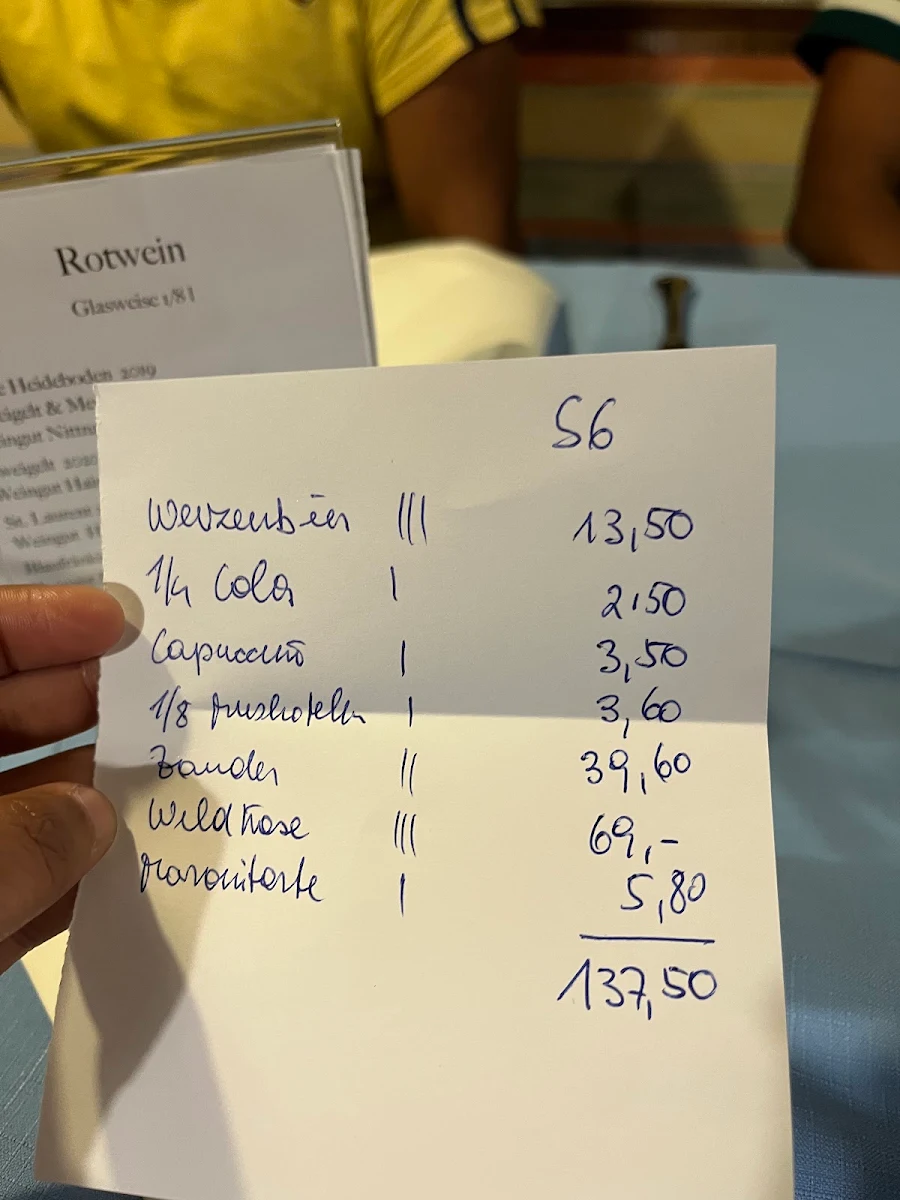 Rotwein
Glasweise 1/8 l
Heideboden 2019
eigelt & Me
ingut Nittn
weigelt 2020
Weingut Hai
St. Laurent
Weingut H
S6
Weizenbier ||| 13,50
1/4 Cola | 2.50
Capuccino | 3,50
1/8 Muskateller | 3,60
Zander || 39,60
Wildhase ||| 69,-
Maronitorte | 5,80
137,50